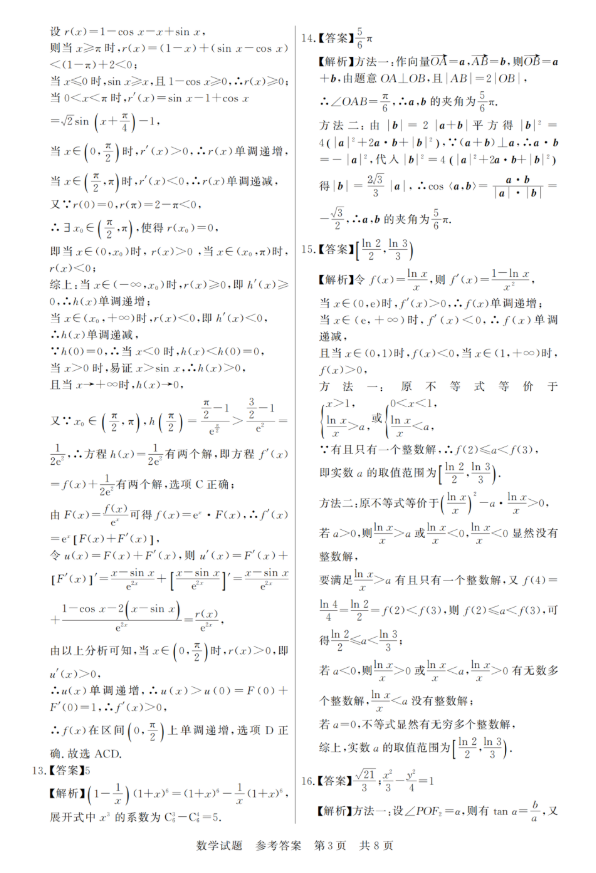 设 r(x)=1-cos x-x+sin x,
则当 x≥π 时,r(x)=(1-x)+(sin x-cos x)
<(1-π)+2<0;
当 x≤0 时,sin x≥x,且 1-cos x≥0,∴r(x)≥0;
当 0<x<π 时,r′(x)=sin x-1+cos x
=√2 sin (x+π/4)-1,
当 x∈(0,π/2)时,r′(x)>0,∴r(x)单调递增,
当 x∈(π/2,π)时,r′(x)<0,∴r(x)单调递减,
又∵r(0)=0,r(π)=2-π<0,
∴∃x₀∈(π/2,π),使得 r(x₀)=0,
即当 x∈(0,x₀)时,r(x)>0 ,当 x∈(x₀,π)时,
r(x)<0;
综上:当 x∈(-∞,x₀)时,r(x)≥0,即 h′(x)≥
0,∴h(x)单调递增;
当 x∈(x₀,+∞)时,r(x)<0,即 h′(x)<0,
∴h(x)单调递减,
∵h(0)=0,∴当 x<0 时,h(x)<h(0)=0,
当 x>0 时,易证 x>sin x,∴h(x)>0,
且当 x→+∞时,h(x)→0,
又∵x₀∈(π/2,π),h(π/2)=(π/2-1)/e^(π/2)>(3/2-1)/e²=
1/2e²,∴方程 h(x)=1/2e²有两个解,即方程 f′(x)
=f(x)+1/2e²有两个解,选项 C 正确;
由 F(x)=f(x)/eˣ可得 f(x)=eˣ·F(x),∴f′(x)
=eˣ[F(x)+F′(x)],
令 u(x)=F(x)+F′(x),则 u′(x)=F′(x)+
[F′(x)]′=(x-sin x)/e²ˣ+[(x-sin x)/e²ˣ]′=(x-sin x)/e²ˣ
+(1-cos x-2(x-sin x))/e²ˣ=r(x)/e²ˣ,
由以上分析可知,当 x∈(0,π/2)时,r(x)>0,即
u′(x)>0,
∴u(x)单调递增,∴u(x)>u(0)=F(0)+
F′(0)=1,∴f′(x)>0,
∴f(x)在区间(0,π/2)上单调递增,选项 D 正
确.故选 ACD.
13.【答案】5
【解析】(1-1/x)(1+x)⁶=(1+x)⁶-1/x(1+x)⁶,
展开式中 x² 的系数为 C₆²-C₆³=5.
14.【答案】5/6π
【解析】方法一:作向量OA=a,AB=b,则OB=a
+b,由题意 OA⊥OB,且|AB|=2|OB|,
∴∠OAB=π/6,∴a,b 的夹角为5/6π.
方法二:由 |b|=2 |a+b|平方得 |b|²=
4(|a|²+2a·b+|b|²),∵(a+b)⊥a,∴a·b
=-|a|²,代入|b|²=4(|a|²+2a·b+|b|²)
得|b|=2√3/3|a|,∴cos ⟨a,b⟩=a·b/|a|·|b|=
-√3/2,∴a,b 的夹角为5/6π.
15.【答案】[ln 2/2,ln 3/3)
【解析】令 f(x)=ln x/x,则 f′(x)=(1-ln x)/x²,
当 x∈(0,e)时,f′(x)>0,∴f(x)单调递增;
当 x∈(e,+∞)时,f′(x)<0,∴f(x)单调
递减,
且当 x∈(0,1)时,f(x)<0,当 x∈(1,+∞)时,
f(x)>0,
方法一:原不等式等价于
{x>1, ln x/x>a,或{0<x<1, ln x/x<a,
∵有且只有一个整数解,∴f(2)≤a<f(3),
即实数 a 的取值范围为[ln 2/2,ln 3/3).
方法二:原不等式等价于(ln x/x)²-a·ln x/x>0,
若 a>0,则ln x/x>a 或ln x/x<0,ln x/x<0 显然没有
整数解,
要满足ln x/x>a 有且只有一个整数解,又 f(4)=
ln 4/4=ln 2/2=f(2)<f(3),则 f(2)≤a<f(3),可
得ln 2/2≤a<ln 3/3;
若 a<0,则ln x/x>0 或ln x/x<a,ln x/x>0 有无数多
个整数解,ln x/x<a 没有整数解;
若 a=0,不等式显然有无穷多个整数解,
综上,实数 a 的取值范围为[ln 2/2,ln 3/3).
16.【答案】√21/3;x²/3-y²/4=1
【解析】方法一:设∠POF₂=α,则有 tan α=b/a,又
数学试题 参考答案 第3页 共8页